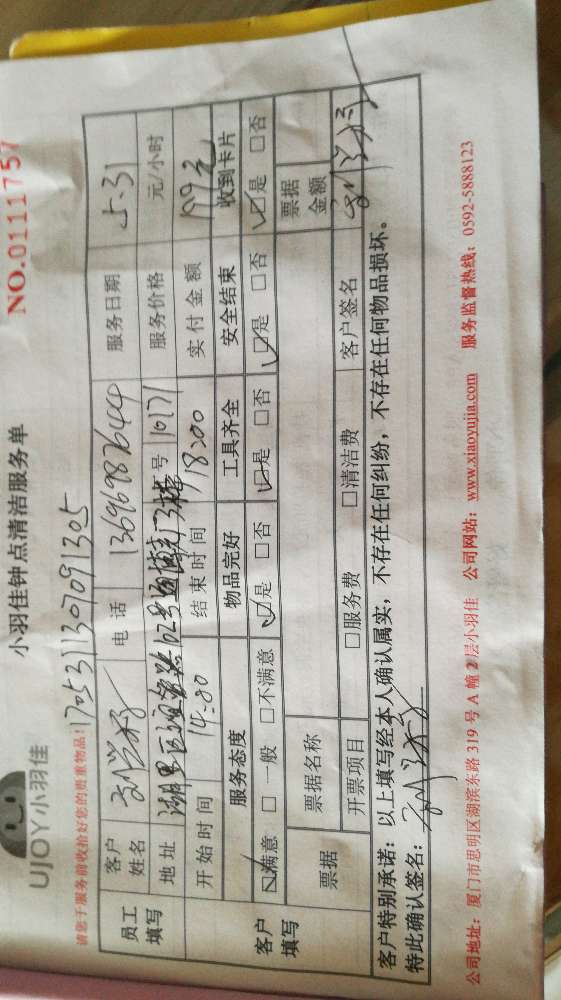 UJOY小羽佳
小羽佳钟点清洁服务单
NO.0111757
请您于服务前收拾好您的贵重物品!
1705311307091305
员工填写
客户姓名
电话 13696987644
服务日期 5.31
地址 湖里区
号
服务价格 元/小时
开始时间 14:00
结束时间 18:00
实付金额 199元
客户填写
服务态度 物品完好 工具齐全 安全结束 收到卡片
☑满意 □一般 □不满意 ☑是 □否 ☑是 □否 ☑是 □否 ☑是 □否
票据 票据名称 票据金额
开票项目 □服务费 □清洁费 客户签名
客户特别承诺:以上填写经本人确认属实,不存在任何纠纷,不存在任何物品损坏。
特此确认签名:
公司地址:厦门市思明区湖滨东路 319 号 A 幢 2 层小羽佳 公司网站:www.xiaoyujia.com 服务监督热线:0592-5888123